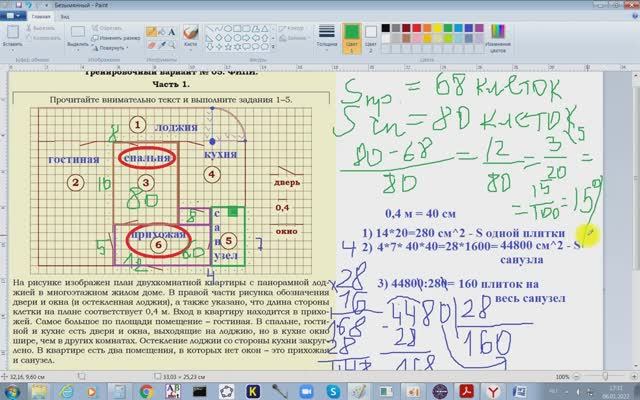 Безымянный - Paint
Главная Вид
Вставить
Выделить
Изменить размер
Повернуть
Кисти
Контур
Заливка
Толщина
Цвет 1
Цвет 2
Изменение цветов
Буфер обмена
Изображение
Инструменты
Фигуры
Цвета
Тренировочный вариант № 05. ФИПИ.
Часть 1.
Прочитайте внимательно текст и выполните задания 1–5.
1
лоджия
8
гостиная
спальня
кухня
2
3
4
10
80
дверь
0,4
окно
8
прихожая
6
5
12
санузел
5
7
4
На рисунке изображен план двухкомнатной квартиры с панорамной лоджией в многоэтажном жилом доме. В правой части рисунка обозначения
двери и окна (и остекленная лоджия), а также указано, что длина стороны
клетки на плане соответствует 0,4 м. Вход в квартиру находится в прихожей. Самое большое по площади помещение – гостиная. В спальне, гостиной и кухне есть двери и окна, выходящие на лоджию, но в кухне окно
шире, чем в других комнатах. Остекление лоджии со стороны кухни закруглено. В квартире есть два помещения, в которых нет окон – это прихожая
и санузел.
Sпр = 68 клеток
Sсп = 80 клеток
80-68 / 80 = 12 / 80 = 3 / 20 =
= 15 / 100 = 15%
0,4 м = 40 см
1) 14*20=280 см^2 - S одной плитки
2) 4*7* 40*40=28*1600= 44800 см^2 - S
санузла
3) 44800:280= 160 плиток на
весь санузел
4
28
16
168
28
448
4480 28
28 160
168
32,16, 9,60 см
33,03 × 25,23 см
17:31
06.01.2022